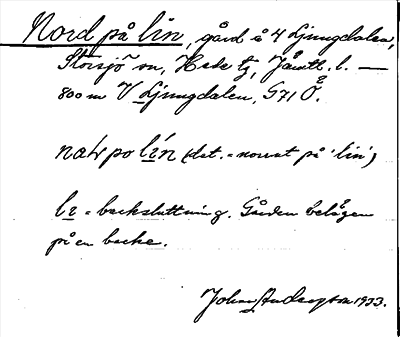 Nord på lin, gård i Ljungdalen,
Storsjö sn, Hede tg, Jämtl. l. —
800 m V Ljungdalen, G71 Ö.
natpo lín (dat. = norrut på 'lin')
lı = backsluttning. Gården belägen
på en backe.
Johan Anderson 1933.